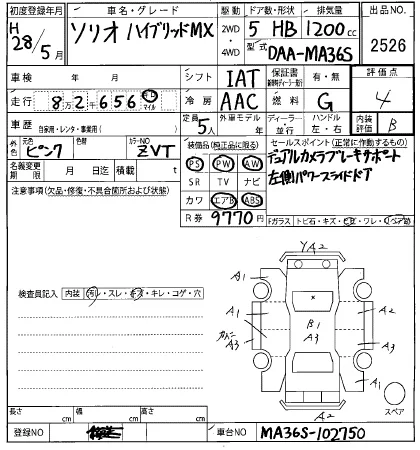 初度登録年月
H
28/5月
車名・グレード
ソリオ ハイブリッドMX
駆動 ドア数・形状 排気量
2WD・4WD 5 HB 1200cc
型式 DAA-MA36S
出品NO.
2526
車検 年 月
シフト IAT
保証書 有・無
評価点
4
走行 8万2千656 キロ マイル
冷房 AAC
燃料 G
車歴 自家用・レンタ・事業用( )
定員 5人
外車モデル 年
ディーラー・並行
ハンドル 左・右
内装評価 B
外色 元色 ピンク 色替 カラーNO ZVT
名義変更期限 月 日迄 積載 t
装備品(純正品に限る)
PS PW AW
SR TV ナビ
カワ エアB ABS
R券 9770円
セールスポイント(正常に作動するもの)
デュアルカメラブレーキサポート
左側パワースライドドア
注意事項(欠品・修復・不具合箇所および状態)
Fガラス
検査員記入 内装 汚レ・スレ・キズ・キレ・コゲ・穴
YA2
A1 A1
A1 B1 A2
A3 A3 A3
A1
A2
スペア
長さ cm 幅 cm 高さ cm
登録NO
車台NO MA36S-102750